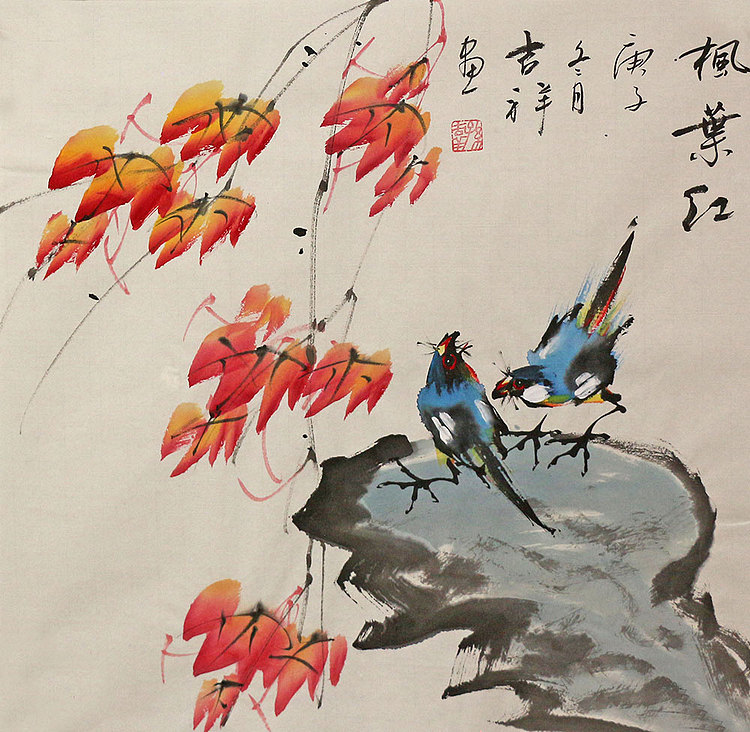 楓葉红
庚子
冬月
吉祥
画